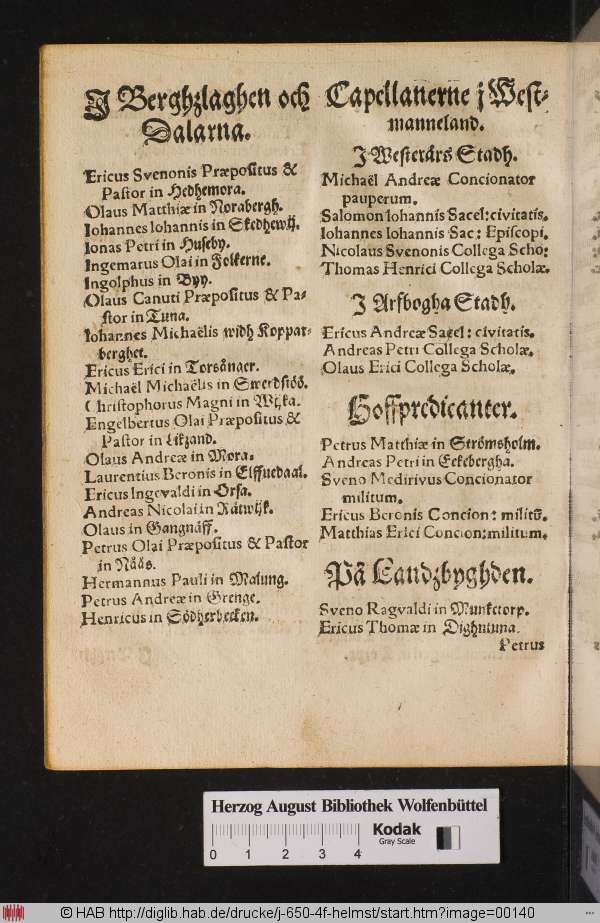 J Berghzlaghen och
Dalarna.
Ericus Svenonis Præpositus &
Pastor in Hedhemora.
Olaus Matthiæ in Norabergh.
Iohannes Iohannis in Skedhewij.
Ionas Petri in Huseby.
Ingemarus Olai in Folkerne.
Ingolphus in Byy.
Olaus Canuti Præpositus & Pa-
stor in Tuna.
Iohannes Michaëlis widh Koppar-
berghet.
Ericus Erici in Torsånger.
Michaël Michaëlis in Swerdsiöö.
Christophorus Magni in Wijka.
Engelbertus Olai Præpositus &
Pastor in Likzand.
Olaus Andreæ in Mora.
Laurentius Beronis in Elffuedaal.
Ericus Ingevaldi in Orsa.
Andreas Nicolai in Rätwijk.
Olaus in Gangnäff.
Petrus Olai Præpositus & Pastor
in Nåås.
Hermannus Pauli in Malung.
Petrus Andreæ in Grenge.
Henricus in Södherbecken.
Capellanerne j West-
manneland.
J Westerårs Stadh.
Michaël Andreæ Concionator
pauperum.
Salomon Iohannis Sacel: civitatis.
Iohannes Iohannis Sac: Episcopi.
Nicolaus Svenonis Collega Scho:
Thomas Henrici Collega Scholæ.
J Arfbogha Stadh.
Ericus Andreæ Sacel: civitatis.
Andreas Petri Collega Scholæ.
Olaus Erici Collega Scholæ.
Hoffpredicanter.
Petrus Matthiæ in Strömsholm.
Andreas Petri in Eckebergha.
Sveno Medirivus Concionator
militum.
Ericus Beronis Concion: militū.
Matthias Erici Concion: militum.
På Landzbyghden.
Sveno Ragvaldi in Munketorp.
Ericus Thomæ in Dighntuna.
Petrus
Herzog August Bibliothek Wolfenbüttel
0 1 2 3 4
Kodak
Gray Scale
© HAB http://diglib.hab.de/drucke/j-650-4f-helmst/start.htm?image=00140